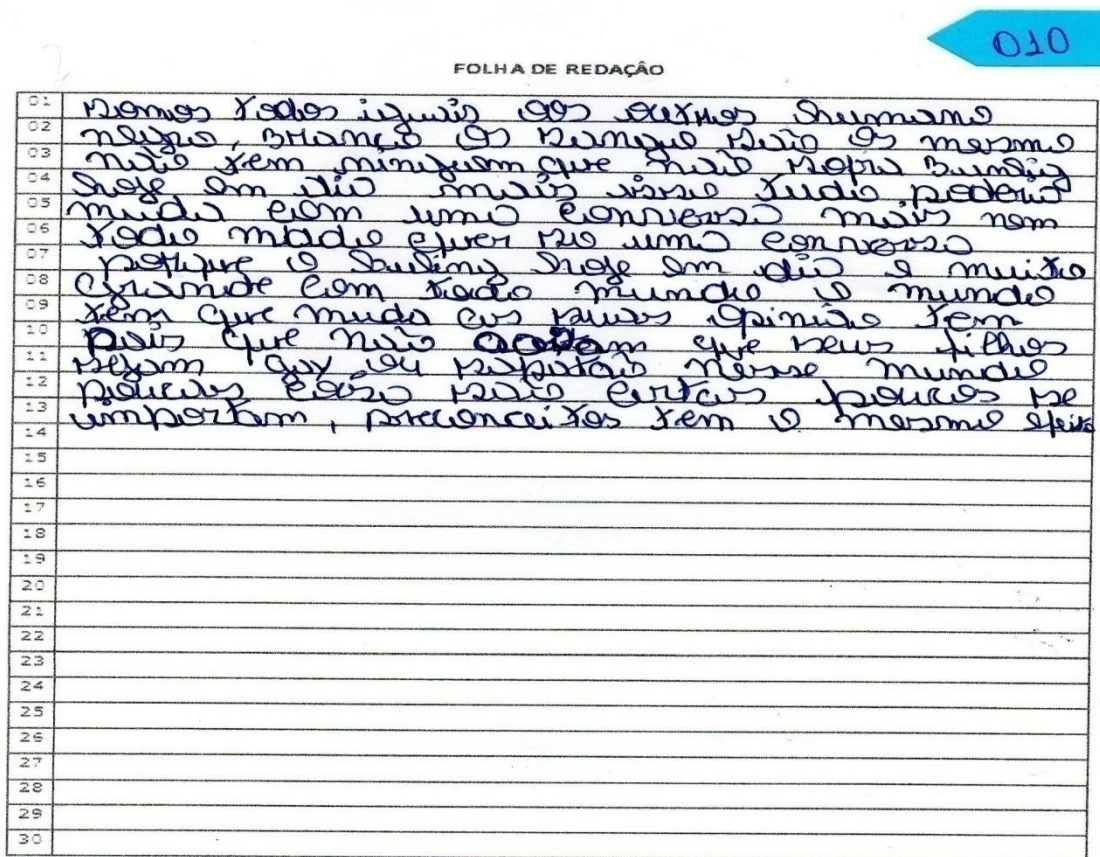 010
FOLHA DE REDAÇÃO
01 somos todos iguais aos outros humano
02 negro, branco os sangue são os mesmo
03 não tem ninguem que não sofra buling
04 hoje em dia mais isso tudo poderia
05 muda com uma conversa mais nem
06 todo mado quer so uma conversa
07 porque o buling hoje em dia e muito
08 grande com todo mundo o mundo
09 tem que muda as suas opinião tem
10 pais que não que seus filhos
11 sejam gay ou nesse mundo
12 poucas coisa são certas poucos se
13 importam, preconceitos tem o mesmo efeito
14
15
16
17
18
19
20
21
22
23
24
25
26
27
28
29
30